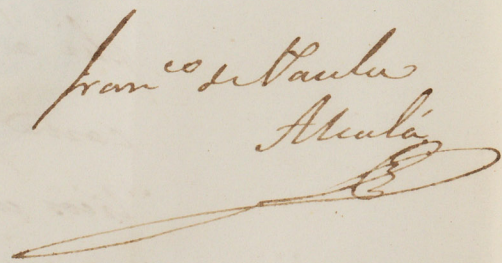 Fran.co de Paula
Alcalá